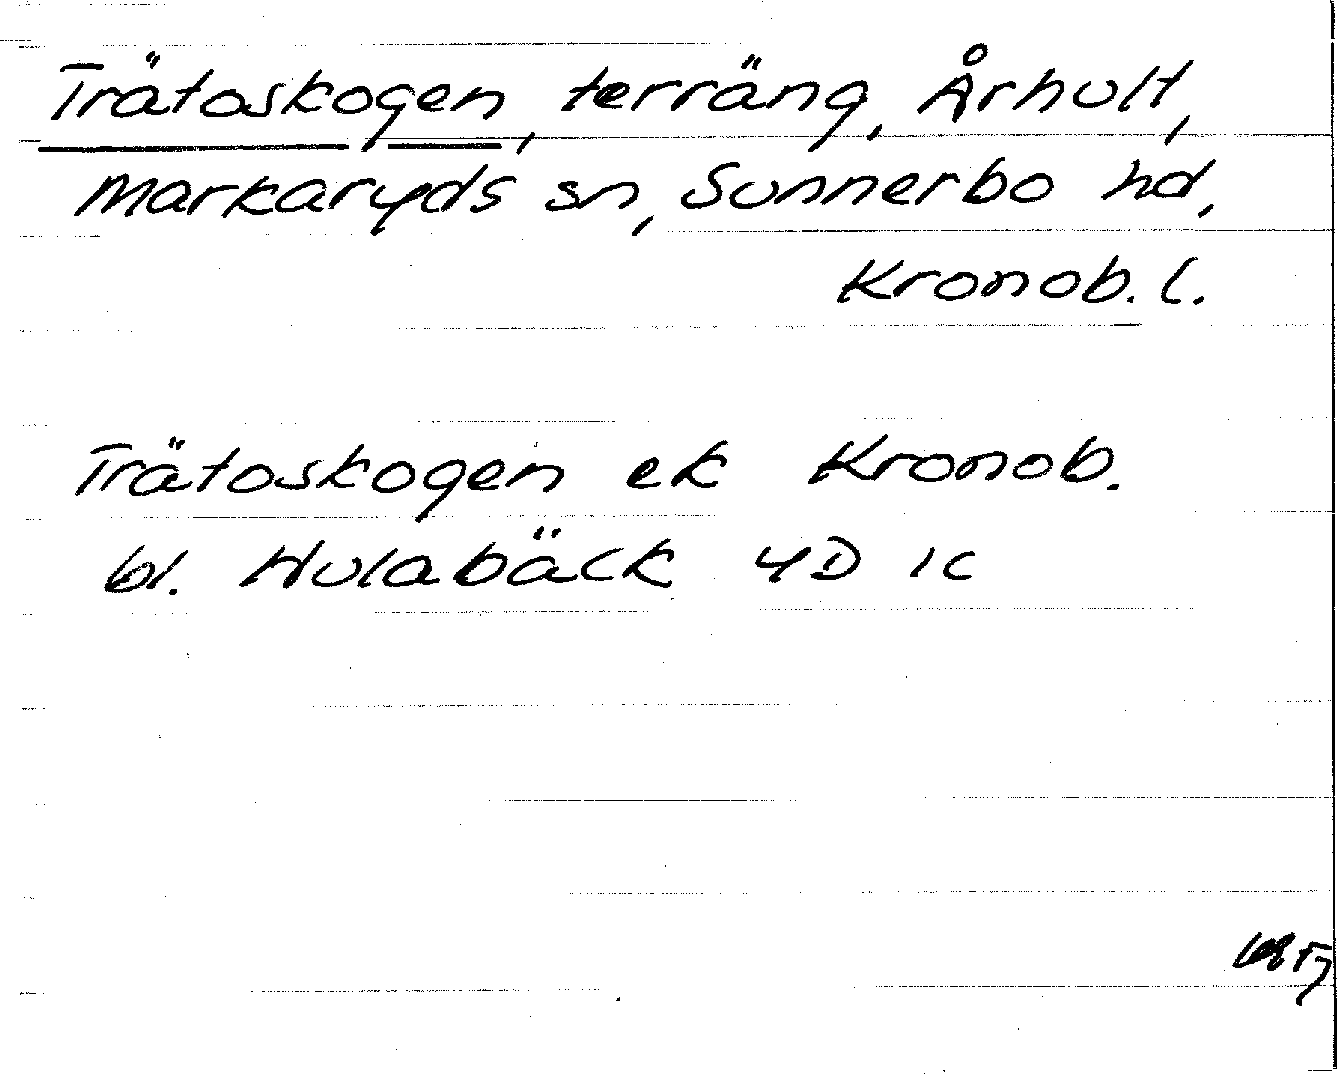 Trätoskogen, terräng, Århult,
Markaryds sn, Sunnerbo hd,
Kronob. l.
Trätoskogen ek Kronob.
bl. Hulabäck 4D 1c